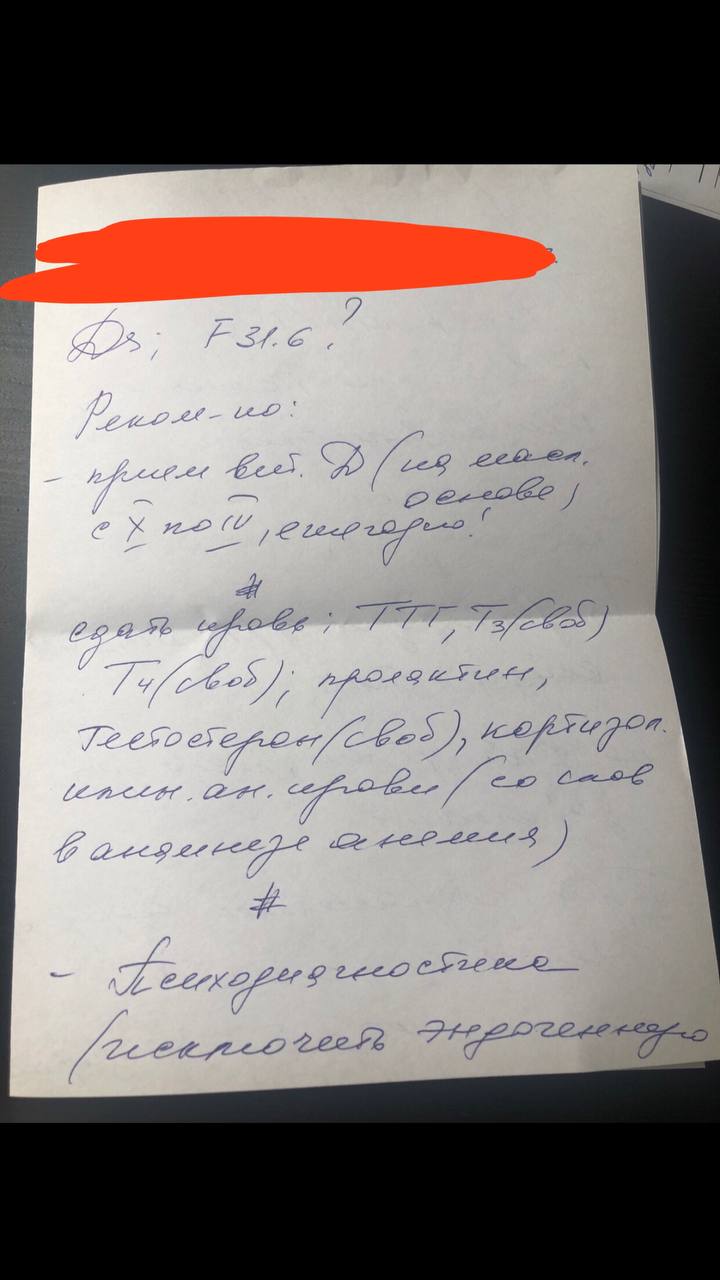 Ds; F 31.6 ?
Реком-но:
- прием вит. Д (на масл.
основе)
с X по IV, ежегодно!
#
сдать кровь; ТТГ, Т3 (своб)
Т4 (своб); пролактин,
тестостерон (своб), кортизол.
клин. ан. крови (со слов
в анамнезе анемия)
#
- Психодиагностика
(исключить эндогенную